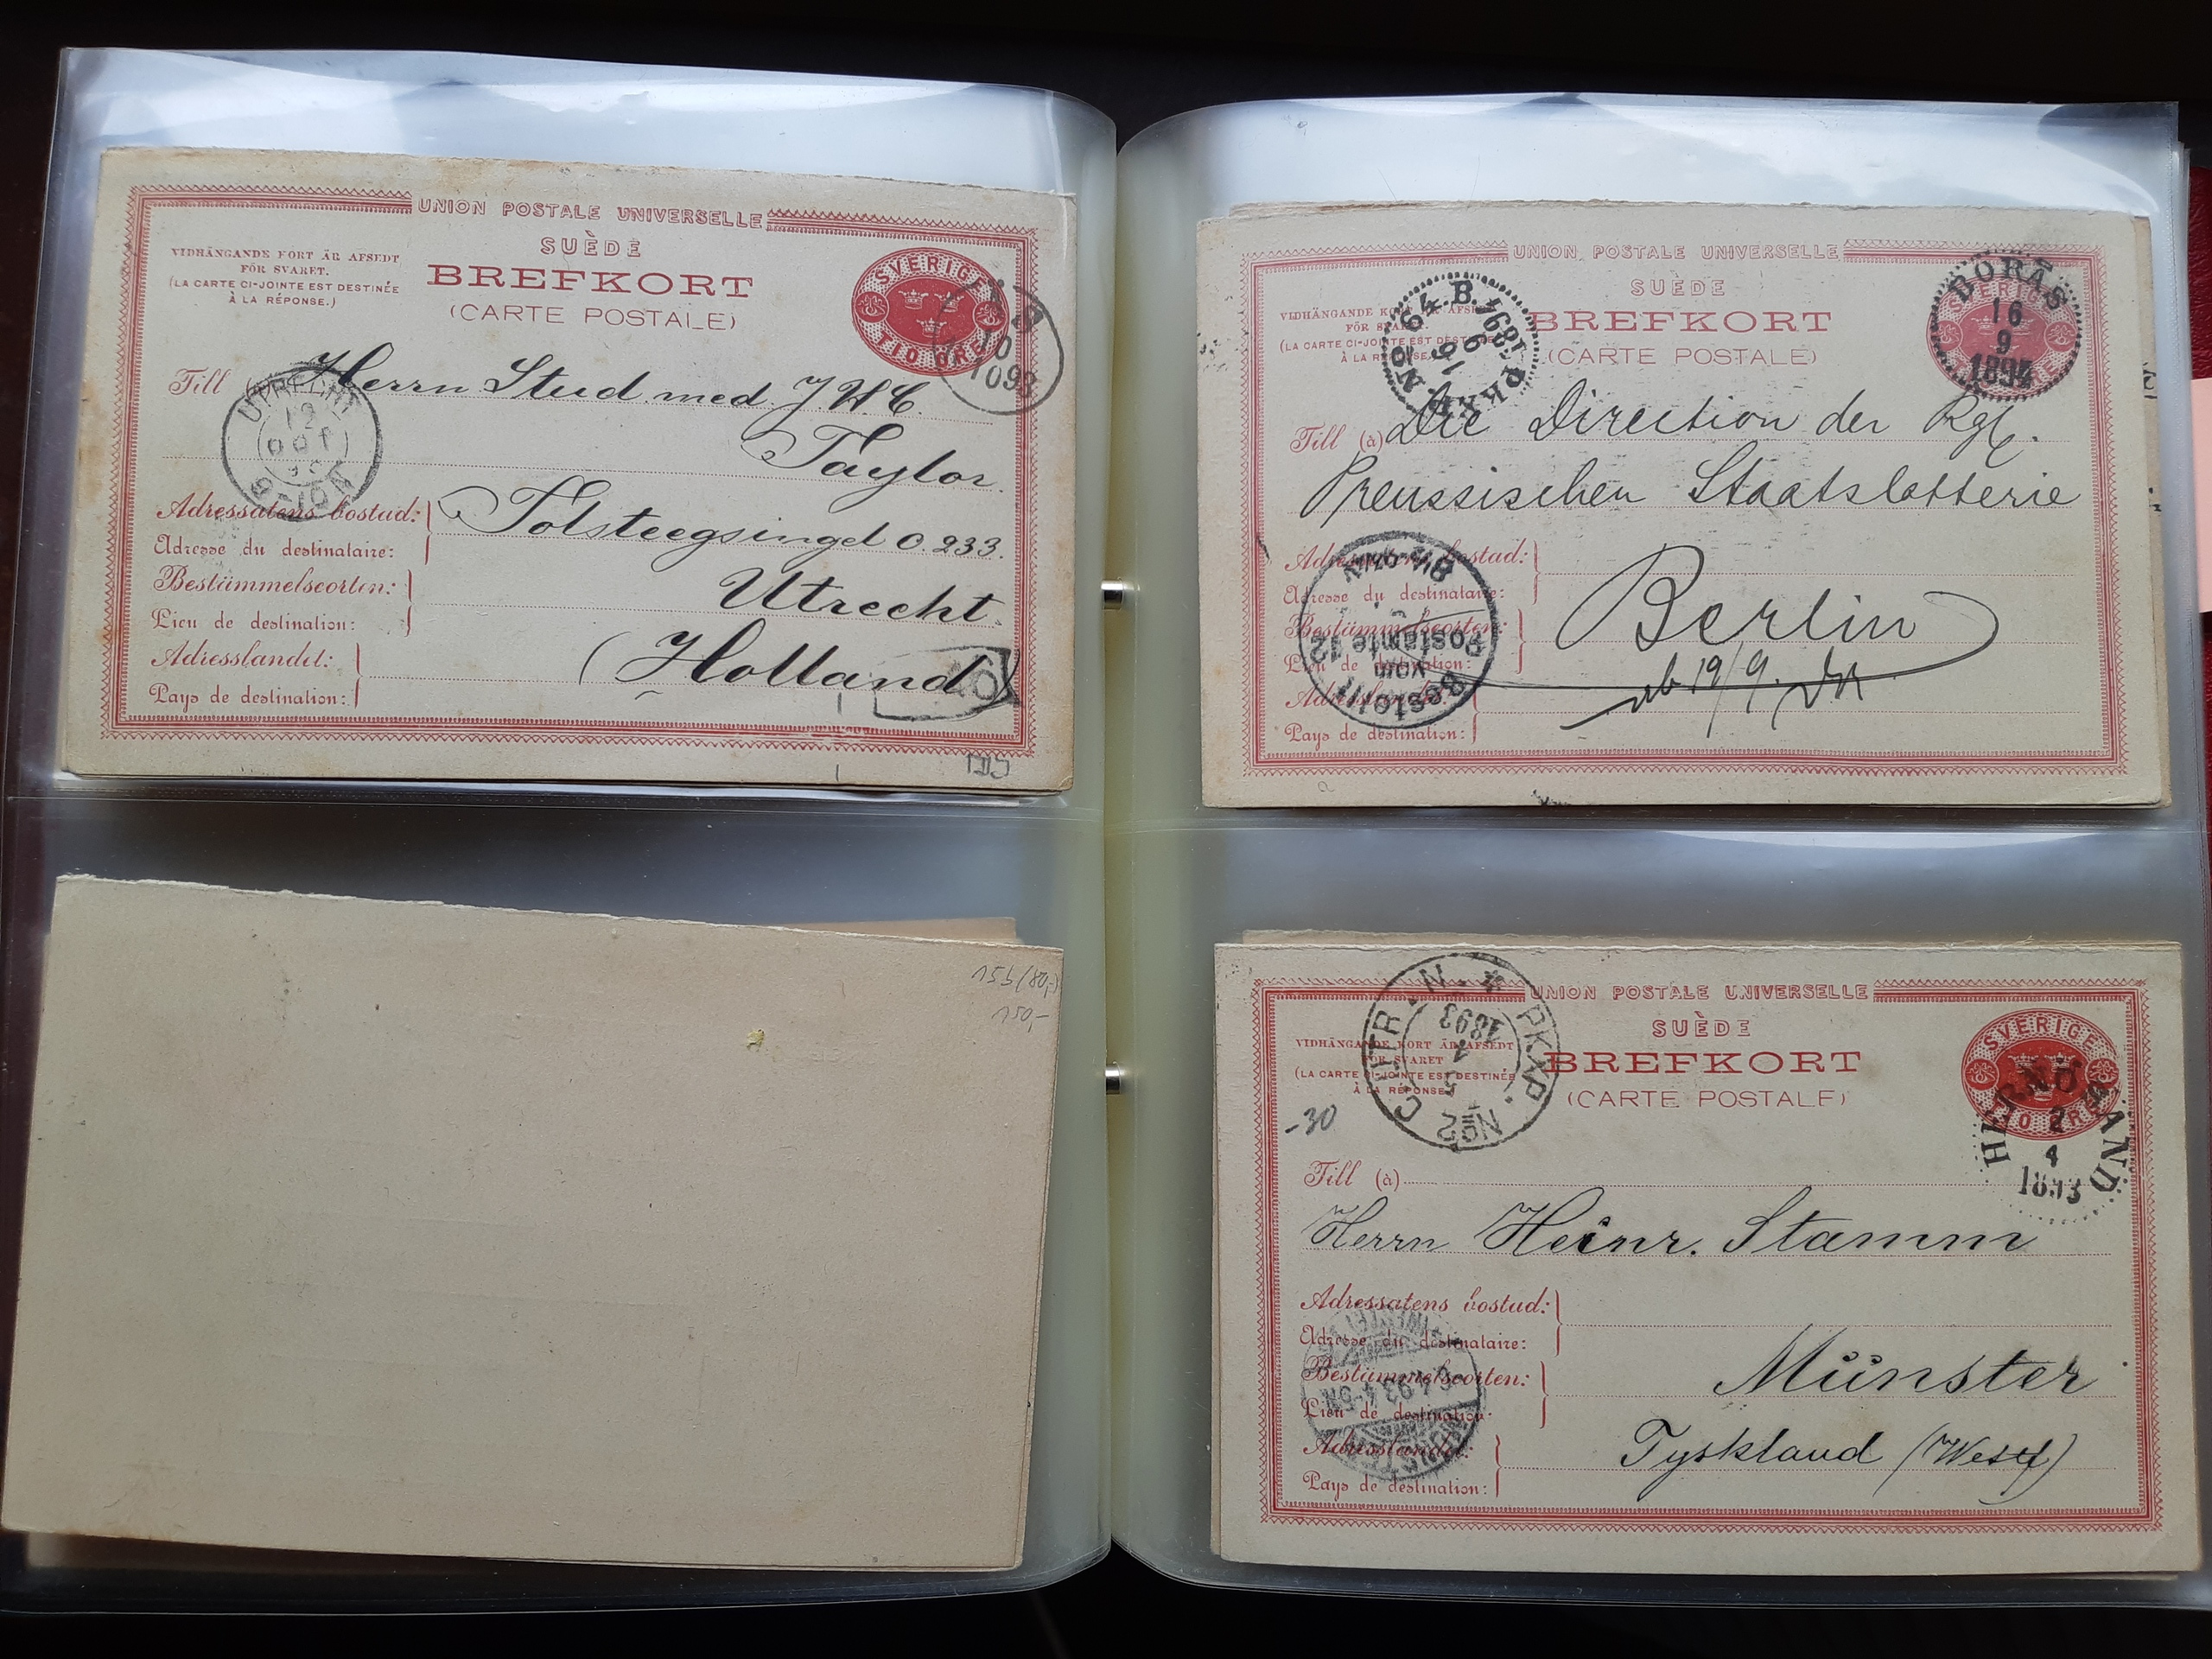 UNION POSTALE UNIVERSELLE
SUÈDE
BREFKORT
(CARTE POSTALE)
VIDHÄNGANDE KORT ÄR AFSEDT
FÖR SVARET.
(LA CARTE CI-JOINTE EST DESTINÉE
À LA RÉPONSE.)
SVERIGE
TIO ÖRE
10
1093
Till
Herrn Stud. med. J. W. C.
Taylor
UTRECHT
12
OCT
93
Adressatens bostad:
Adresse du destinataire:
Tolsteegsingel O 233.
Bestämmelseorten:
Lieu de destination:
Utrecht.
Adresslandet:
Pays de destination:
(Holland)
UNION POSTALE UNIVERSELLE
SUÈDE
BREFKORT
(CARTE POSTALE)
VIDHÄNGANDE KORT ÄR AFSEDT
FÖR SVARET.
(LA CARTE CI-JOINTE EST DESTINÉE
À LA RÉPONSE.)
PKXP. No 94. B.
16
9
1894
BORÅS
16
9
1894
SVERIGE
Till (à)
Die Direction der Kgl.
Preussischen Staatslotterie
Adressatens bostad:
Adresse du destinataire:
Bestämmelseorten:
Lieu de destination:
Berlin
Adresslandet:
Pays de destination:
ab 19/9.
Bestellt
vom
Postamte 12
155/80,-
150,-
UNION POSTALE UNIVERSELLE
SUÈDE
BREFKORT
(CARTE POSTALE)
VIDHÄNGANDE KORT ÄR AFSEDT
FÖR SVARET
(LA CARTE CI-JOINTE EST DESTINÉE
À LA RÉPONSE)
PKXP. No 2 C. UTR. N.
5
4
1893
SVERIGE
TIO ÖRE
HERNÖSAND
2
4
1893
-30
Till (à)
Herrn Heinr. Stamm
Adressatens bostad:
Adresse du destinataire:
Bestämmelseorten:
Lieu de destination:
Münster
Adresslandet:
Pays de destination:
Tyskland (Westf)